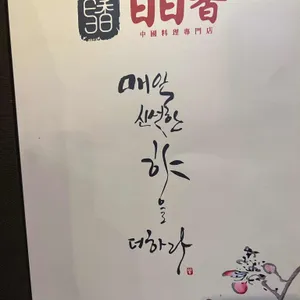 日日香
中國料理專門店
매일
신선한
향
을
더하라